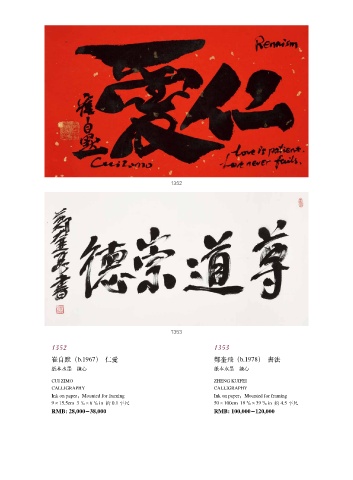 Renaism
仁愛
崔自默
Cuizimo
Love is patience.
Love never fails.
1352
尊道崇德
鄭奎飛書
1353
1352
崔自默（b.1967） 仁愛
紙本水墨 鏡心
CUI ZIMO
CALLIGRAPHY
Ink on paper, Mounted for framing
RMB: 28,000−38,000
1353
鄭奎飛（b.1978） 書法
紙本水墨 鏡心
ZHENG KUIFEI
CALLIGRAPHY
Ink on paper, Mounted for framing
RMB: 100,000−120,000